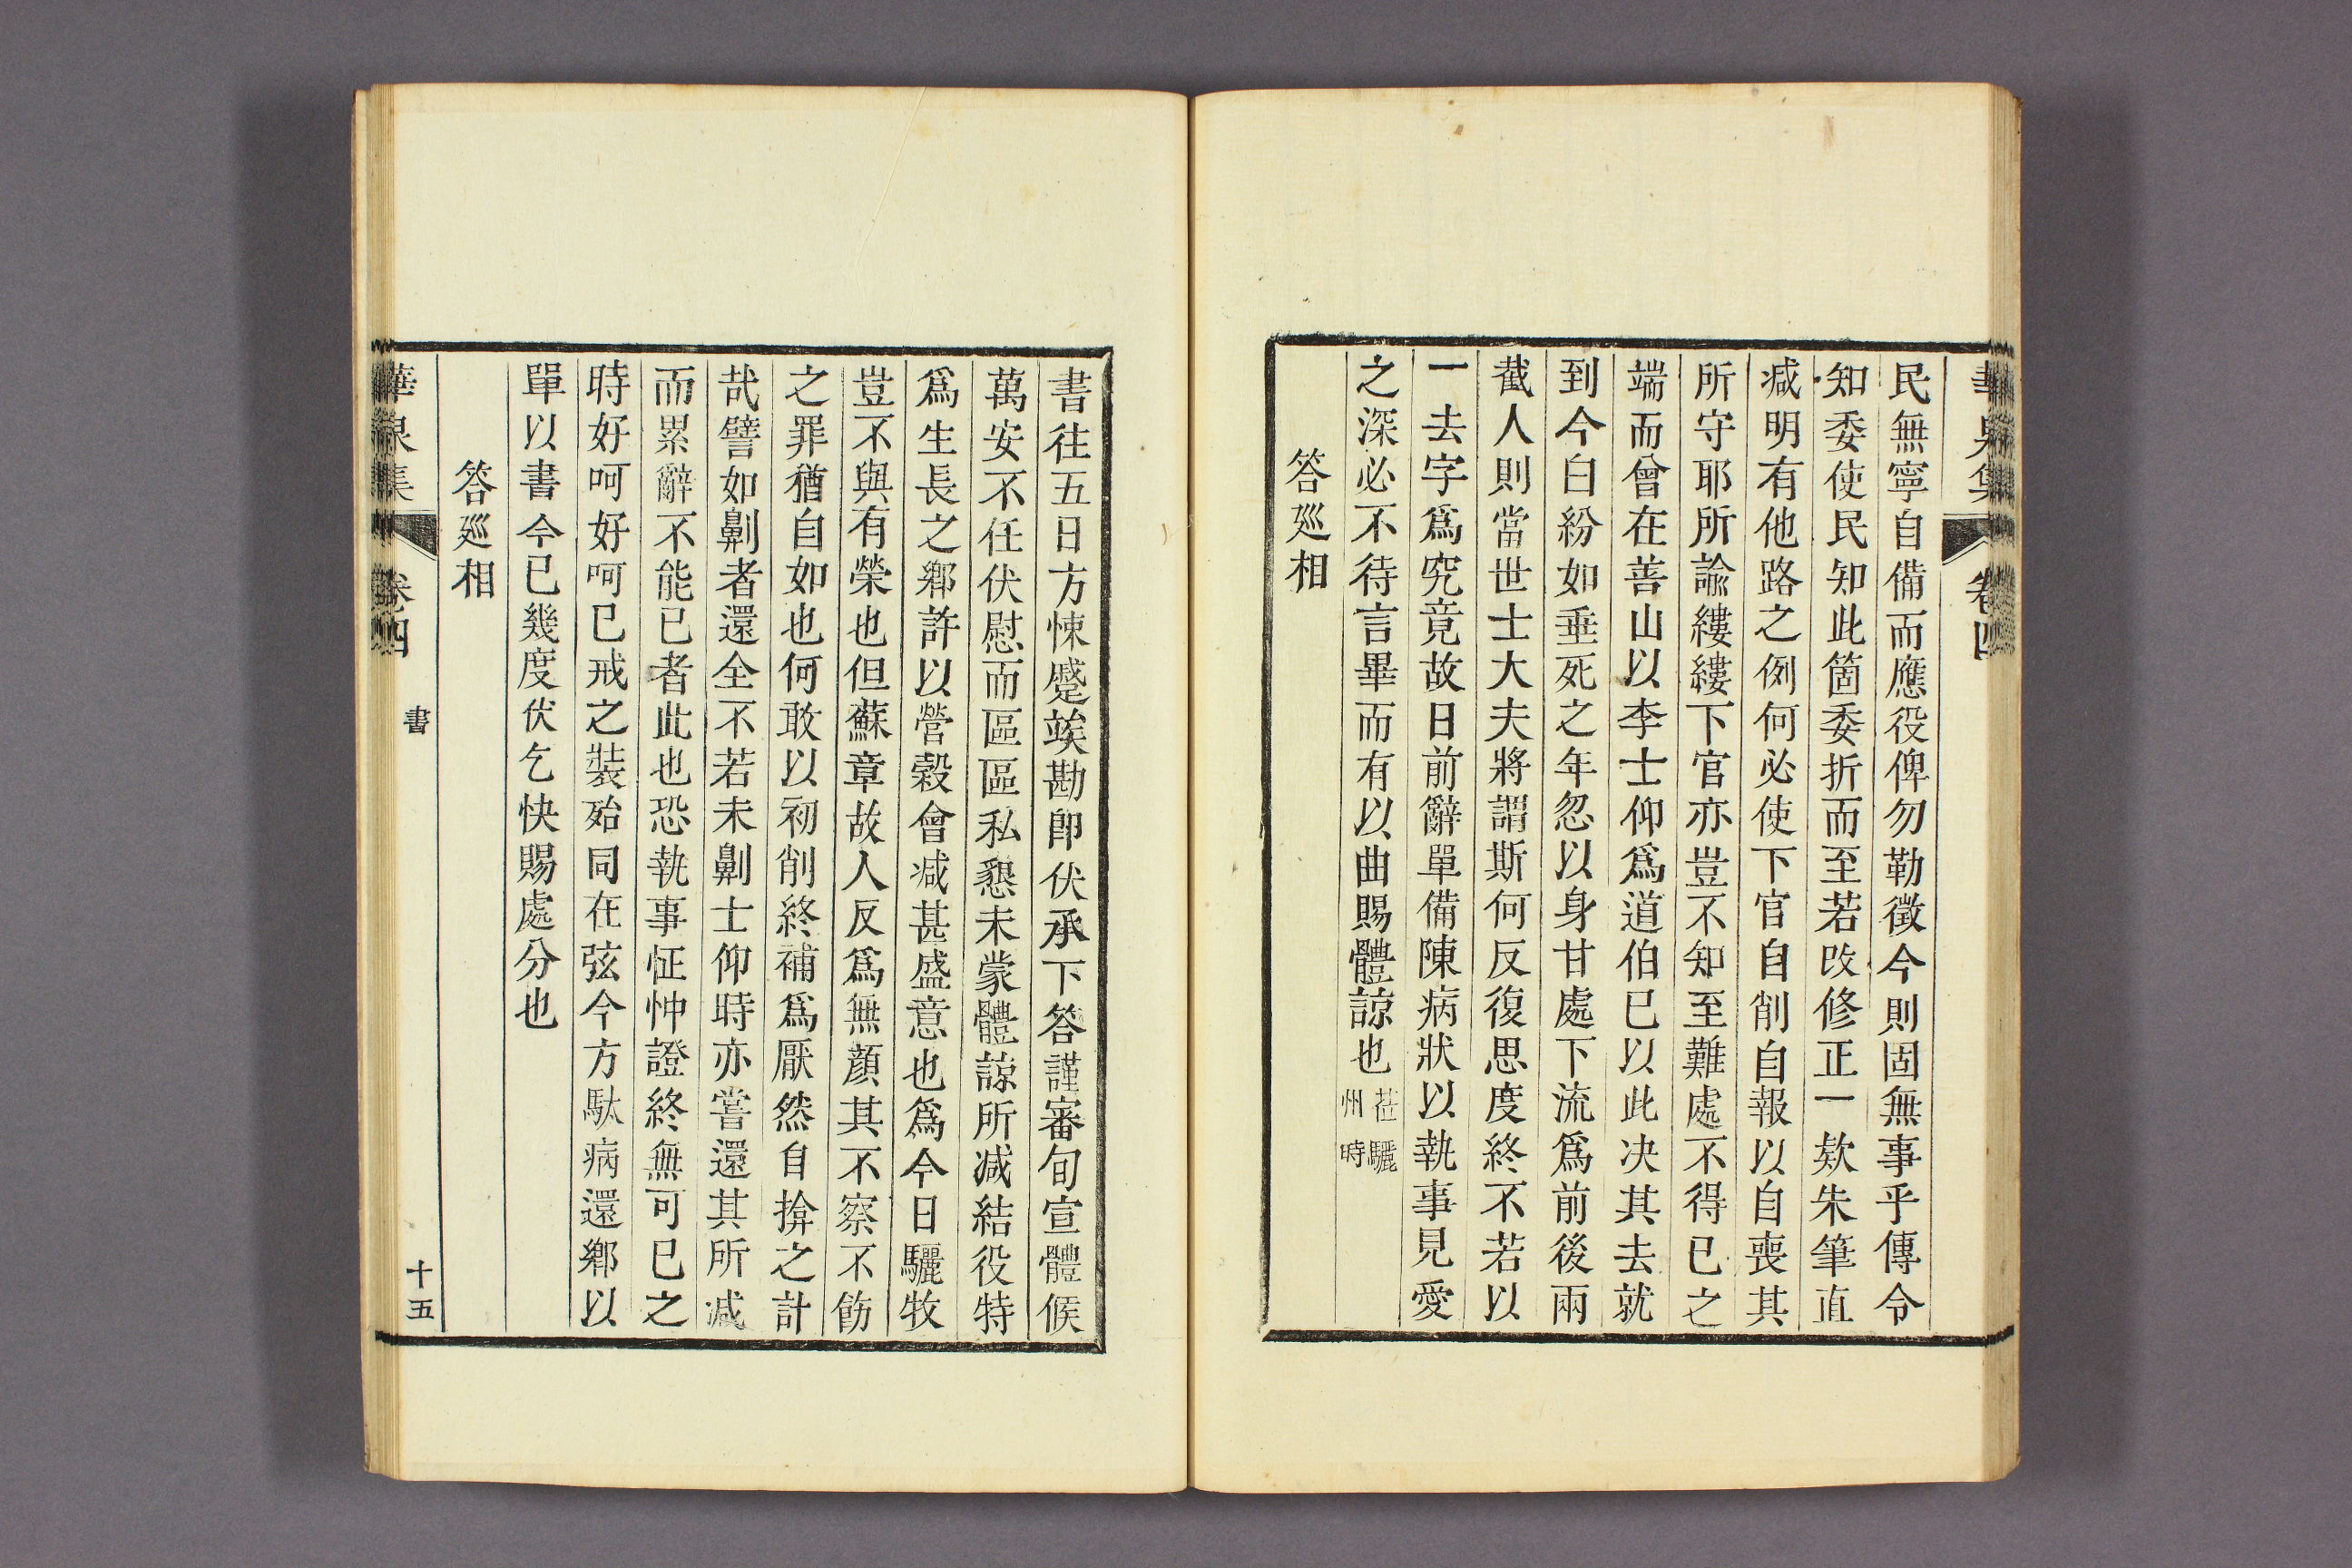 民無寧自備而應役俾勿勒徵今則固無事乎傳令
知委使民知此箇委折而至若改修正一欵朱筆直
减明有他路之例何必使下官自削自報以自喪其
所守耶所諭縷縷下官亦豈不知至難處不得已之
端而曾在善山以李士仰爲道伯已以此决其去就
到今白紛如垂死之年忽以身甘處下流爲前後兩
截人則當世士大夫將謂斯何反復思度終不若以
一去字爲究竟故日前辭單備陳病狀以執事見愛
之深必不待言畢而有以曲賜體諒也莅驪州時
答廵相
書往五日方悚蹙竢勘卽伏承下答謹審旬宣體候
萬安不任伏慰而區區私懇未蒙體諒所减結役特
爲生長之鄕許以營穀會减甚盛意也爲今日驪牧
豈不與有榮也但蘇章故人反爲無顔其不察不飭
之罪猶自如也何敢以初削終補爲厭然自揜之計
哉譬如劓者還全不若未劓士仰時亦嘗還其所减
而累辭不能已者此也恐執事怔忡證終無可已之
時好呵好呵已戒之裝殆同在弦今方馱病還鄕以
單以書今已幾度伏乞快賜處分也
答廵相
華泉集 卷四 書 十五